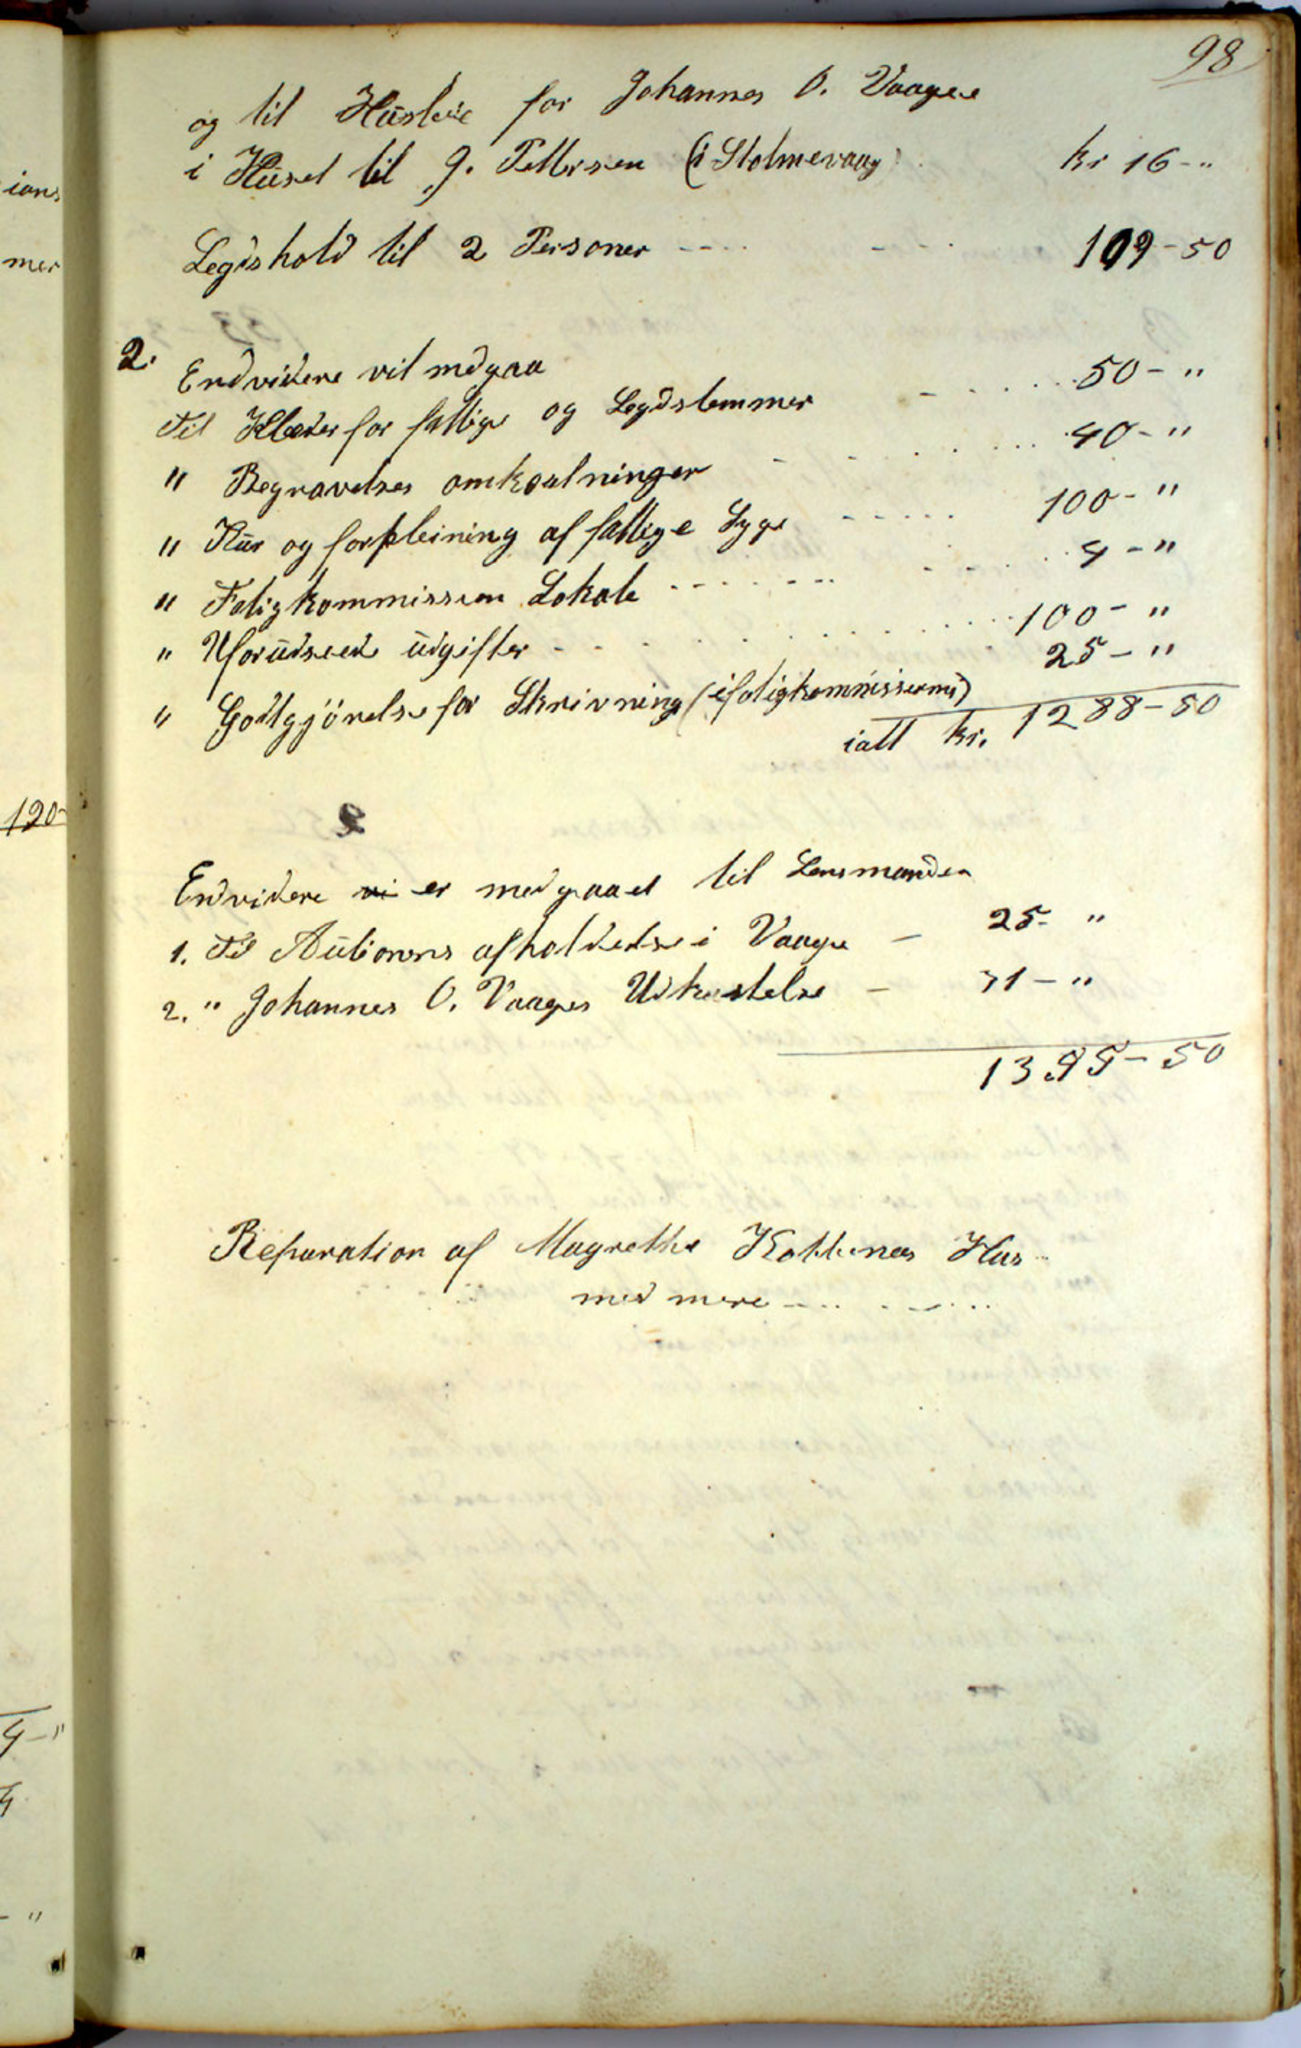 98
og til Huusleie for Johannes O. Vaagene
i Huset til J. Pettersen (i Stolmevaag) kr 16 - "
Legdshold til 2 Personer 109 - 50
2. Endvidere vil medgaa
Til Klæder for fattige og Legdslemmer 50 - "
" Begravelses omkostninger 40 - "
" Kur og forpleining af fattige Syge 100 - "
" Fatigkommissions Lokale 4 - "
" Uforudseede udgifter 100 - "
" Godtgjörelse for Skrivning (i fatigkommissionen) 25 - "
ialt kr. 1288 - 50
Endvidere er medgaaet til Lensmanden
1. Til Auktionens afholdelse i Vaage - 25 - "
2. " Johannes O. Vaages Udkastelse - 71 - "
Reparation af Magrethe Hus
med mere
ians
mer
120-